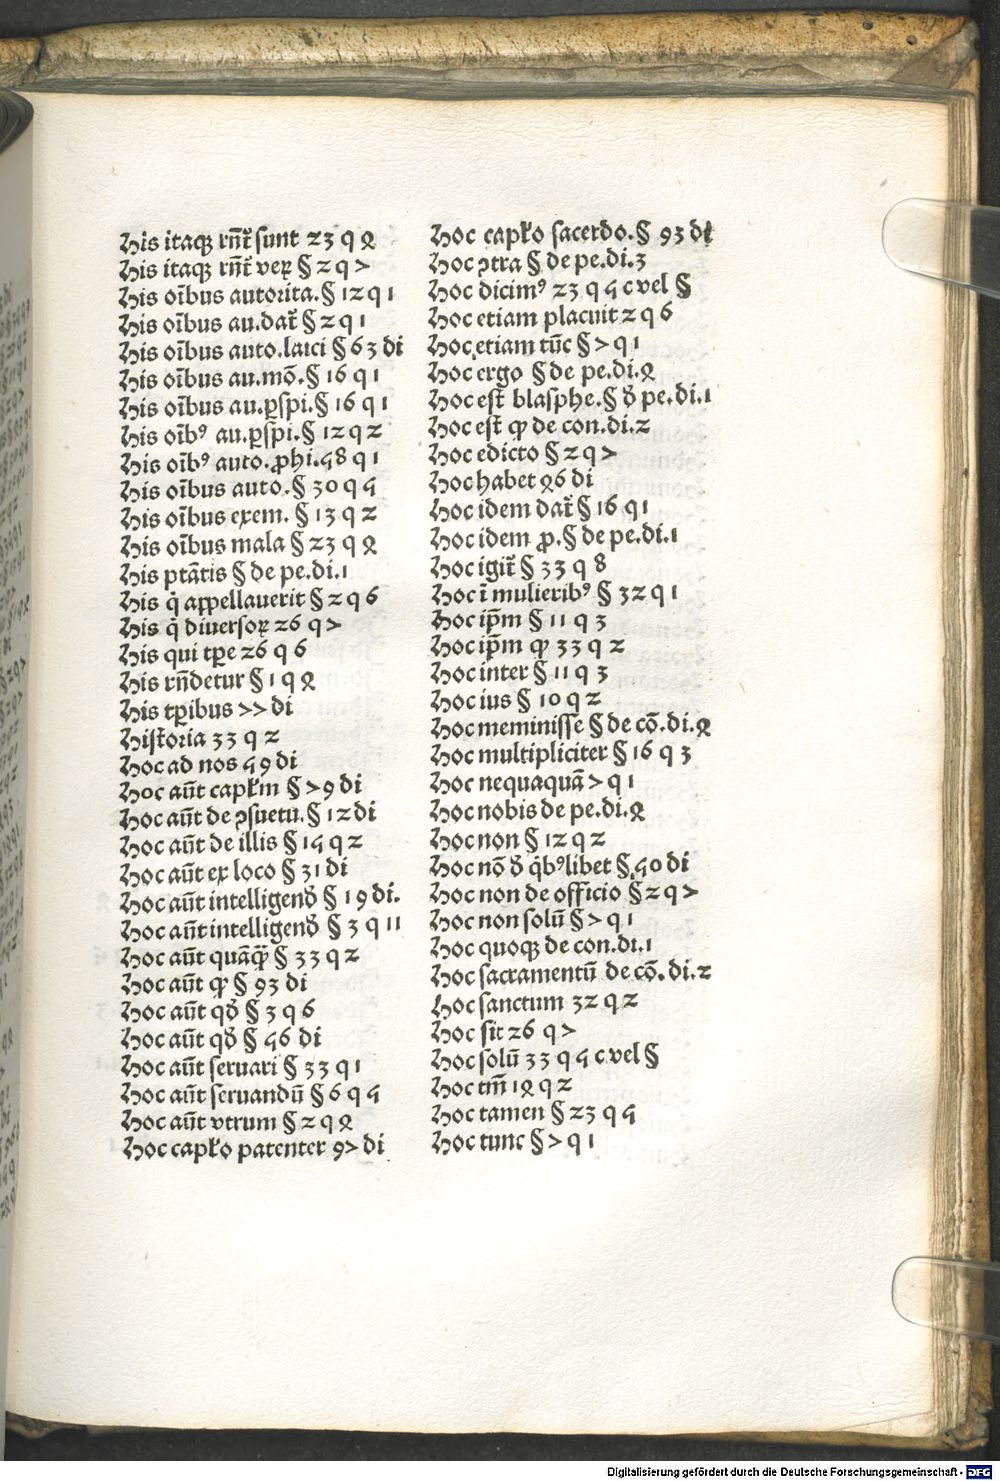 His itaqꝫ rn̄t̄ sunt 23 q ꝝ
His itaqꝫ rn̄t̄ veꝝ § 2 q >
His oībus autorita. § 12 q 1
His oībus au.dat̄ § 2 q 1
His oībus auto.laici § 63 di
His oībus au.mō. § 16 q 1
His oībus au.ꝑspi. § 16 q 1
His oībꝰ au.ꝑspi. § 12 q 2
His oībꝰ auto.ꝓhi. 48 q 1
His oībus auto. § 30 q 4
His oībus exem. § 13 q 2
His oībus mala § 23 q 8
His ptātis § de pe.di.1
His q̇ appellauerit § 2 q 6
His q̇ diuersoꝝ 26 q >
His qui tꝑe 26 q 6
His rn̄detur § 1 q 8
His tꝑibus >> di
Historia 33 q 2
Hoc ad nos 49 di
Hoc aūt capłm § >9 di
Hoc aūt de ꝯsuetu. § 12 di
Hoc aūt de illis § 14 q 2
Hoc aūt ex loco § 31 di
Hoc aūt intelligenḋ § 19 di.
Hoc aūt intelligenḋ § 3 q 11
Hoc aūt quāqꝫ § 33 q 2
Hoc aūt ꝙ § 93 di
Hoc aūt qḋ § 3 q 6
Hoc aūt qḋ § 46 di
Hoc aūt seruari § 33 q 1
Hoc aūt seruandū § 6 q 4
Hoc aūt vtrum § 2 q 8
Hoc capło patenter 9> di
Hoc capło sacerdo. § 93 di
Hoc ꝯtra § de pe.di.3
Hoc dicimꝰ 23 q 4 c vel §
Hoc etiam placuit 2 q 6
Hoc etiam tūc § > q 1
Hoc ergo § de pe.di.8
Hoc est blasphe. § ḋ pe.di.1
Hoc est ꝙ de con.di.2
Hoc edicto § 2 q >
Hoc habet 86 di
Hoc idem dat̄ § 16 q 1
Hoc idem ꝓ. § de pe.di.1
Hoc igit̄ § 33 q 8
Hoc ī mulieribꝰ § 32 q 1
Hoc ip̄m § 11 q 3
Hoc ip̄m ꝙ 33 q 2
Hoc inter § 11 q 3
Hoc ius § 10 q 2
Hoc meminisse § de cō.di.8
Hoc multipliciter § 16 q 3
Hoc nequaquā > q 1
Hoc nobis de pe.di.8
Hoc non § 12 q 2
Hoc nō ḋ q̇bꝰlibet § 40 di
Hoc non de officio § 2 q >
Hoc non solū § > q 1
Hoc quoqꝫ de con.di.1
Hoc sacramentū de cō.di.2
Hoc sanctum 32 q 2
Hoc sit 26 q >
Hoc solū 33 q 4 c.vel §
Hoc tm̄ 18 q 2
Hoc tamen § 23 q 4
Hoc tunc § > q 1
Digitalisierung gefördert durch die Deutsche Forschungsgemeinschaft - DFG